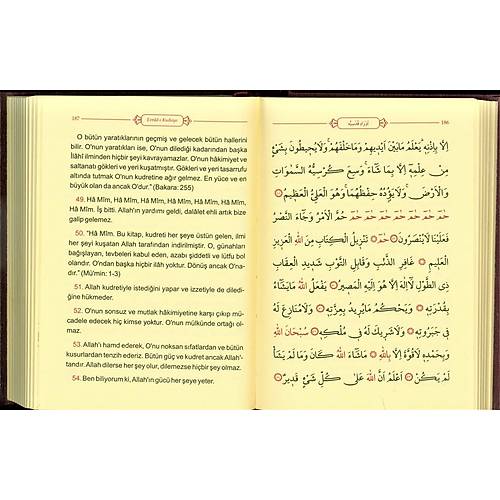 187
Evrâd-ı Kudsiye
O bütün yaratıklarının geçmiş ve gelecek bütün hallerini
bilir. O'nun yaratıkları ise, O'nun dilediği kadarından başka
İlâhî ilminden hiçbir şeyi kavrayamazlar. O'nun hâkimiyet ve
saltanatı gökleri ve yeri kuşatmıştır. Gökleri ve yeri tasarrufu
altında tutmak O'nun kudretine ağır gelmez. En yüce ve en
büyük olan da ancak O'dur." (Bakara: 255)
49. Hâ Mîm, Hâ Mîm, Hâ Mîm, Hâ Mîm, Hâ Mîm, Hâ Mîm,
Hâ Mîm. İş bitti. Allah'ın yardımı geldi, dalâlet ehli artık bize
galip gelemez.
50. "Hâ Mîm. Bu kitap, kudreti her şeye üstün gelen, ilmi
her şeyi kuşatan Allah tarafından indirilmiştir. O, günahları
bağışlayan, tevbeleri kabul eden, azabı şiddetli ve lütfu bol
olandır. O'ndan başka hiçbir ilâh yoktur. Dönüş ancak O'na-
dır." (Mü'min: 1-3)
51. Allah kudretiyle istediğini yapar ve izzetiyle de diledi-
ğine hükmeder.
52. O'nun sonsuz ve mutlak hâkimiyetine karşı çıkıp mü-
cadele edecek hiç kimse yoktur. O'nun mülkünde ortağı ol-
maz.
53. Allah'ı hamd ederek, O'nu noksan sıfatlardan ve bütün
kusurlardan tenzih ederiz. Bütün güç ve kudret ancak Allah'-
tandır. Allah dilerse her şey olur, dilemezse hiçbir şey olmaz.
54. Ben biliyorum ki, Allah'ın gücü her şeye yeter.
186
اَوْرَادِ قُدْسِيَّه
اِلَّا بِاِذْنِهِ يَعْلَمُ مَابَيْنَ اَيْدِيهِمْ وَمَاخَلْفَهُمْ وَلَايُحِيطُونَ بِشَيْءٍ
مِنْ عِلْمِهِ اِلَّا بِمَا شَاءَ وَسِعَ كُرْسِيُّهُ السَّمٰوَاتِ
وَالْاَرْضَ وَلَايَؤُدُهُ حِفْظُهُمَا وَهُوَ الْعَلِيُّ الْعَظِيمُ
حٰمٓ حٰمٓ حٰمٓ حٰمٓ حٰمٓ حٰمٓ حٰمٓ حُمَّ الْاَمْرُ وَجَاءَ النَّصْرُ
فَعَلَيْنَا لَايُنْصَرُونَ حٰمٓ تَنْزِيلُ الْكِتَابِ مِنَ اللّٰهِ الْعَزِيزِ
الْعَلِيمِ غَافِرِ الذَّنْبِ وَقَابِلِ التَّوْبِ شَدِيدِ الْعِقَابِ
ذِى الطَّوْلِ لَااِلٰهَ اِلَّا هُوَ اِلَيْهِ الْمَصِيرُ يَفْعَلُ اللّٰهُ مَايَشَاءُ
بِقُدْرَتِهِ وَيَحْكُمُ مَايُرِيدُ بِعِزَّتِهِ وَلَامُنَازِعَ لَهُ
فِى جَبَرُوتِهِ وَلَاشَرِيكَ لَهُ فِى مُلْكِهِ سُبْحَانَ اللّٰهِ
وَبِحَمْدِهِ لَاقُوَّةَ اِلَّا بِاللّٰهِ مَاشَاءَ اللّٰهُ كَانَ وَمَا لَمْ يَشَأْ
لَمْ يَكُنْ اَعْلَمُ اَنَّ اللّٰهَ عَلٰى كُلِّ شَيْءٍ قَدِيرٌ